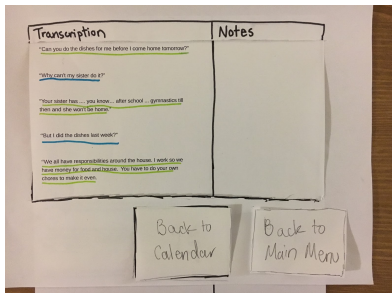 Transcription
Notes
"Can you do the dishes for me before I come home tomorrow?"
"Why can't my sister do it?"
"Your sister has .... you know... after school ... gymnastics till
then and she won't be home."
"But I did the dishes last week?"
"We all have responsibilities around the house. I work so we
have money for food and house. You have to do your own
chores to make it even.
Back to
Calendar
Back to
Main Menu